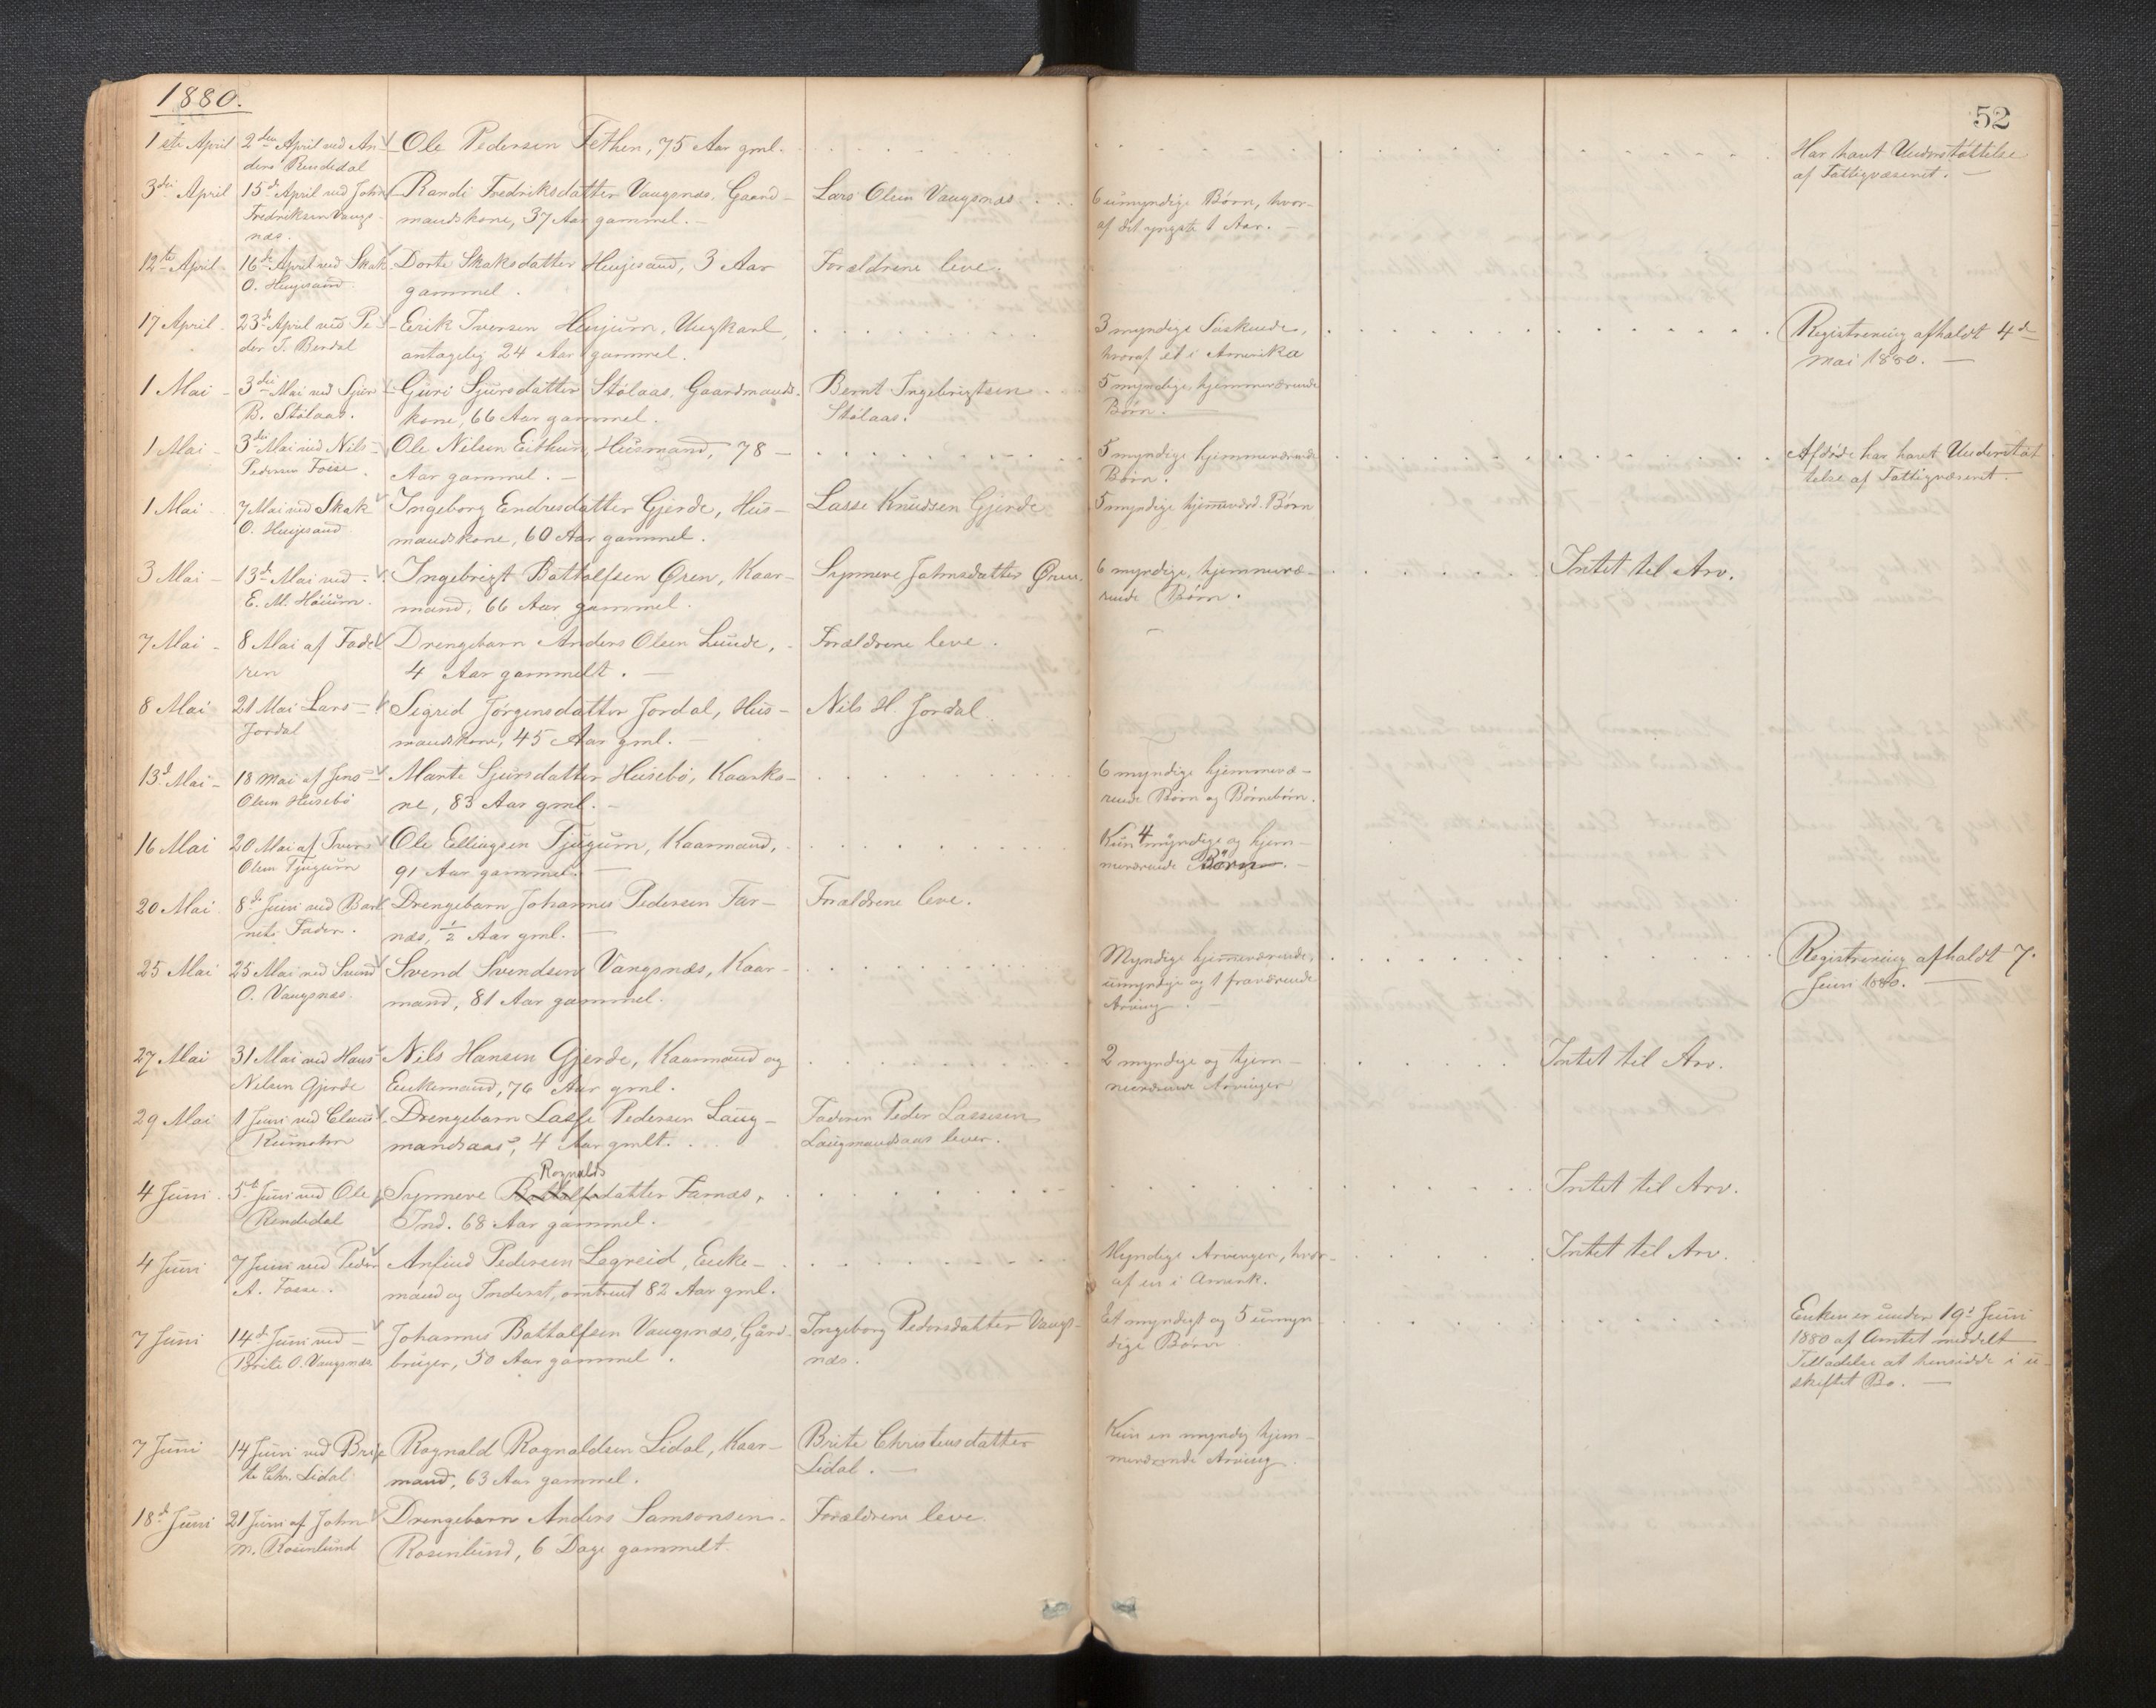 1880.
52
1ste April 2den April ved An- Ole Pedersen Fethen, 75 Aar gml. Har havt Understøttelse
ders Rendedal af Fattigvæsenet. —
3die April 15de April ved John Randi Fredriksdatter Vangsnæs, Gaard- Lars Olsen Vangsnæs 6 umyndige Børn, hvor-
Fredriksen Vangs- mandskone, 37 Aar gammel. — af det yngste 1 Aar. —
næs.
12te April 16de April ved Skak Dorte Skaksdatter Henjesand, 3 Aar Forældrene leve.
O. Henjesand gammel.
17 April 23de April ved Pe- Erik Iversen Henjum, Ungkarl, 3 myndige Søskende, Registrering afholdt 4de
der J. Bendal antagelig 24 Aar gammel. hvoraf et i Amerika Mai 1880. —
1 Mai 3die Mai ved Sjur Guri Sjursdatter Stølaas, Gaardmands- Bernt Ingebrigtsen 5 myndige hjemmeværende
B. Stølaas. kone, 66 Aar gammel. Stølaas. Børn. —
1 Mai 3die Mai ved Nils Ole Nilsen Eithun, Husmand, 78 — 5 myndige hjemmeværende Afdøde har havt Understøt
Pedersen Fosse. Aar gammel. — Børn. telse af Fattigvæsenet.
1 Mai 7 Mai ved Skak Ingeborg Endresdatter Gjerde, Hus- Lasse Knudsen Gjerde 5 myndige hjemmværd. Børn
O. Henjesand mandskone, 60 Aar gammel.
3 Mai 13de Mai ved Ingebrigt Battolfsen Øren, Kaar- Synneve Johnsdatter Øren. 6 myndige, hjemmevæ- Intet til Arv.
E. M. Høium. mand, 66 Aar gammel. rende Børn.
7 Mai 8 Mai af Fade- Drengebarn Anders Olsen Lunde, Forældrene leve.
ren 4 Aar gammelt. —
8 Mai 21 Mai Lars Sigrid Jørgensdatter Jordal, Hus- Nils H. Jordal
Jordal mandskone, 45 Aar gml. —
13de Mai 18 Mai af Jens Marte Sjursdatter Husebø, Kaarko- 6 myndige hjemmevæ-
Olsen Husebø ne, 83 Aar gml. — rende Børn og Børnebørn.
16 Mai 20 Mai af Iver Ole Ellingsen Tjugum, Kaarmand, Kun 4 myndige og hjem-
Olsen Tjugum 91 Aar gammel. — meværende Børn. —
20 Mai 8de Juni ved Bar- Drengebarn Johannes Pedersen Far- Forældrene leve.
nets Fader. næs, 1/2 Aar gml. —
25 Mai 25 Mai ved Svend Svend Svendsen Vangsnæs, Kaar- Myndige hjemmeværende, Registrering afholdt 7.
O. Vangsnæs. mand, 81 Aar gammel. umyndige og 1 fraværende Juni 1880. —
Arving. —
27 Mai 31 Mai ved Hans Nils Hansen Gjerde, Kaarmand og 2 myndige og hjem- Intet til Arv.
Nilsen Gjerde Enkemand, 76 Aar gml. meværende Arvinger
29 Mai 1 Juni ved Claus Drengebarn Lasse Pedersen Laug- Faderen Peder Lassesen
Rumohr mandsaas, 4 Aar gmlt. Laugmandsaas lever.
Rognalds
4 Juni 5te Juni ved Ole Synneve Battolfsdatter Farnæs, Intet til Arv.
Rendedal Ind. 68 Aar gammel.
4 Juni 7 Juni ved Peder Anfind Pedersen Legreid, Enke- Myndige Arvinger, hvor- Intet til Arv.
A. Fosse. mand og Inderst, omtrent 82 Aar gml. af en i Amerik.
7 Juni 14de Juni ved Johannes Battolfsen Vangsnæs, Gård- Ingeborg Pedersdatter Vangs- Et myndigt og 5 umyn- Enken er under 19de Juni
Brite O. Vangsnæs bruger, 50 Aar gammel. næs. dige Børn 1880 af Amtet meddelt
Tilladelse at hensidde i u-
skiftet Bo. —
7 Juni 14 Juni ved Bri- Rognald Rognaldsen Lidal, Kaar- Brite Christensdatter Kun en myndig hjem-
te Chr. Lidal mand, 63 Aar gammel. Lidal. — meværende Arving.
18de Juni 21 Juni af John Drengebarn Anders Samsonsen Forældrene leve.
M. Rosenlund Rosenlund, 6 Dage gammelt.